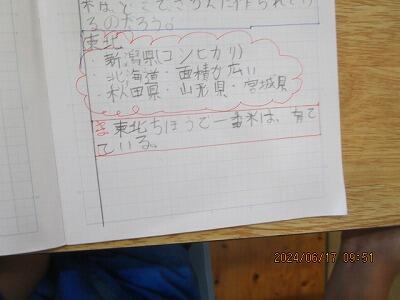 米は、どこでさかんに作られてい
るのだろう。
東北
・新潟県(コシヒカリ)
・北海道・面積が広い
・秋田県・山形県・宮城県
ま東北ちほうで一番米は、育て
ている。
2024/06/17 09:51